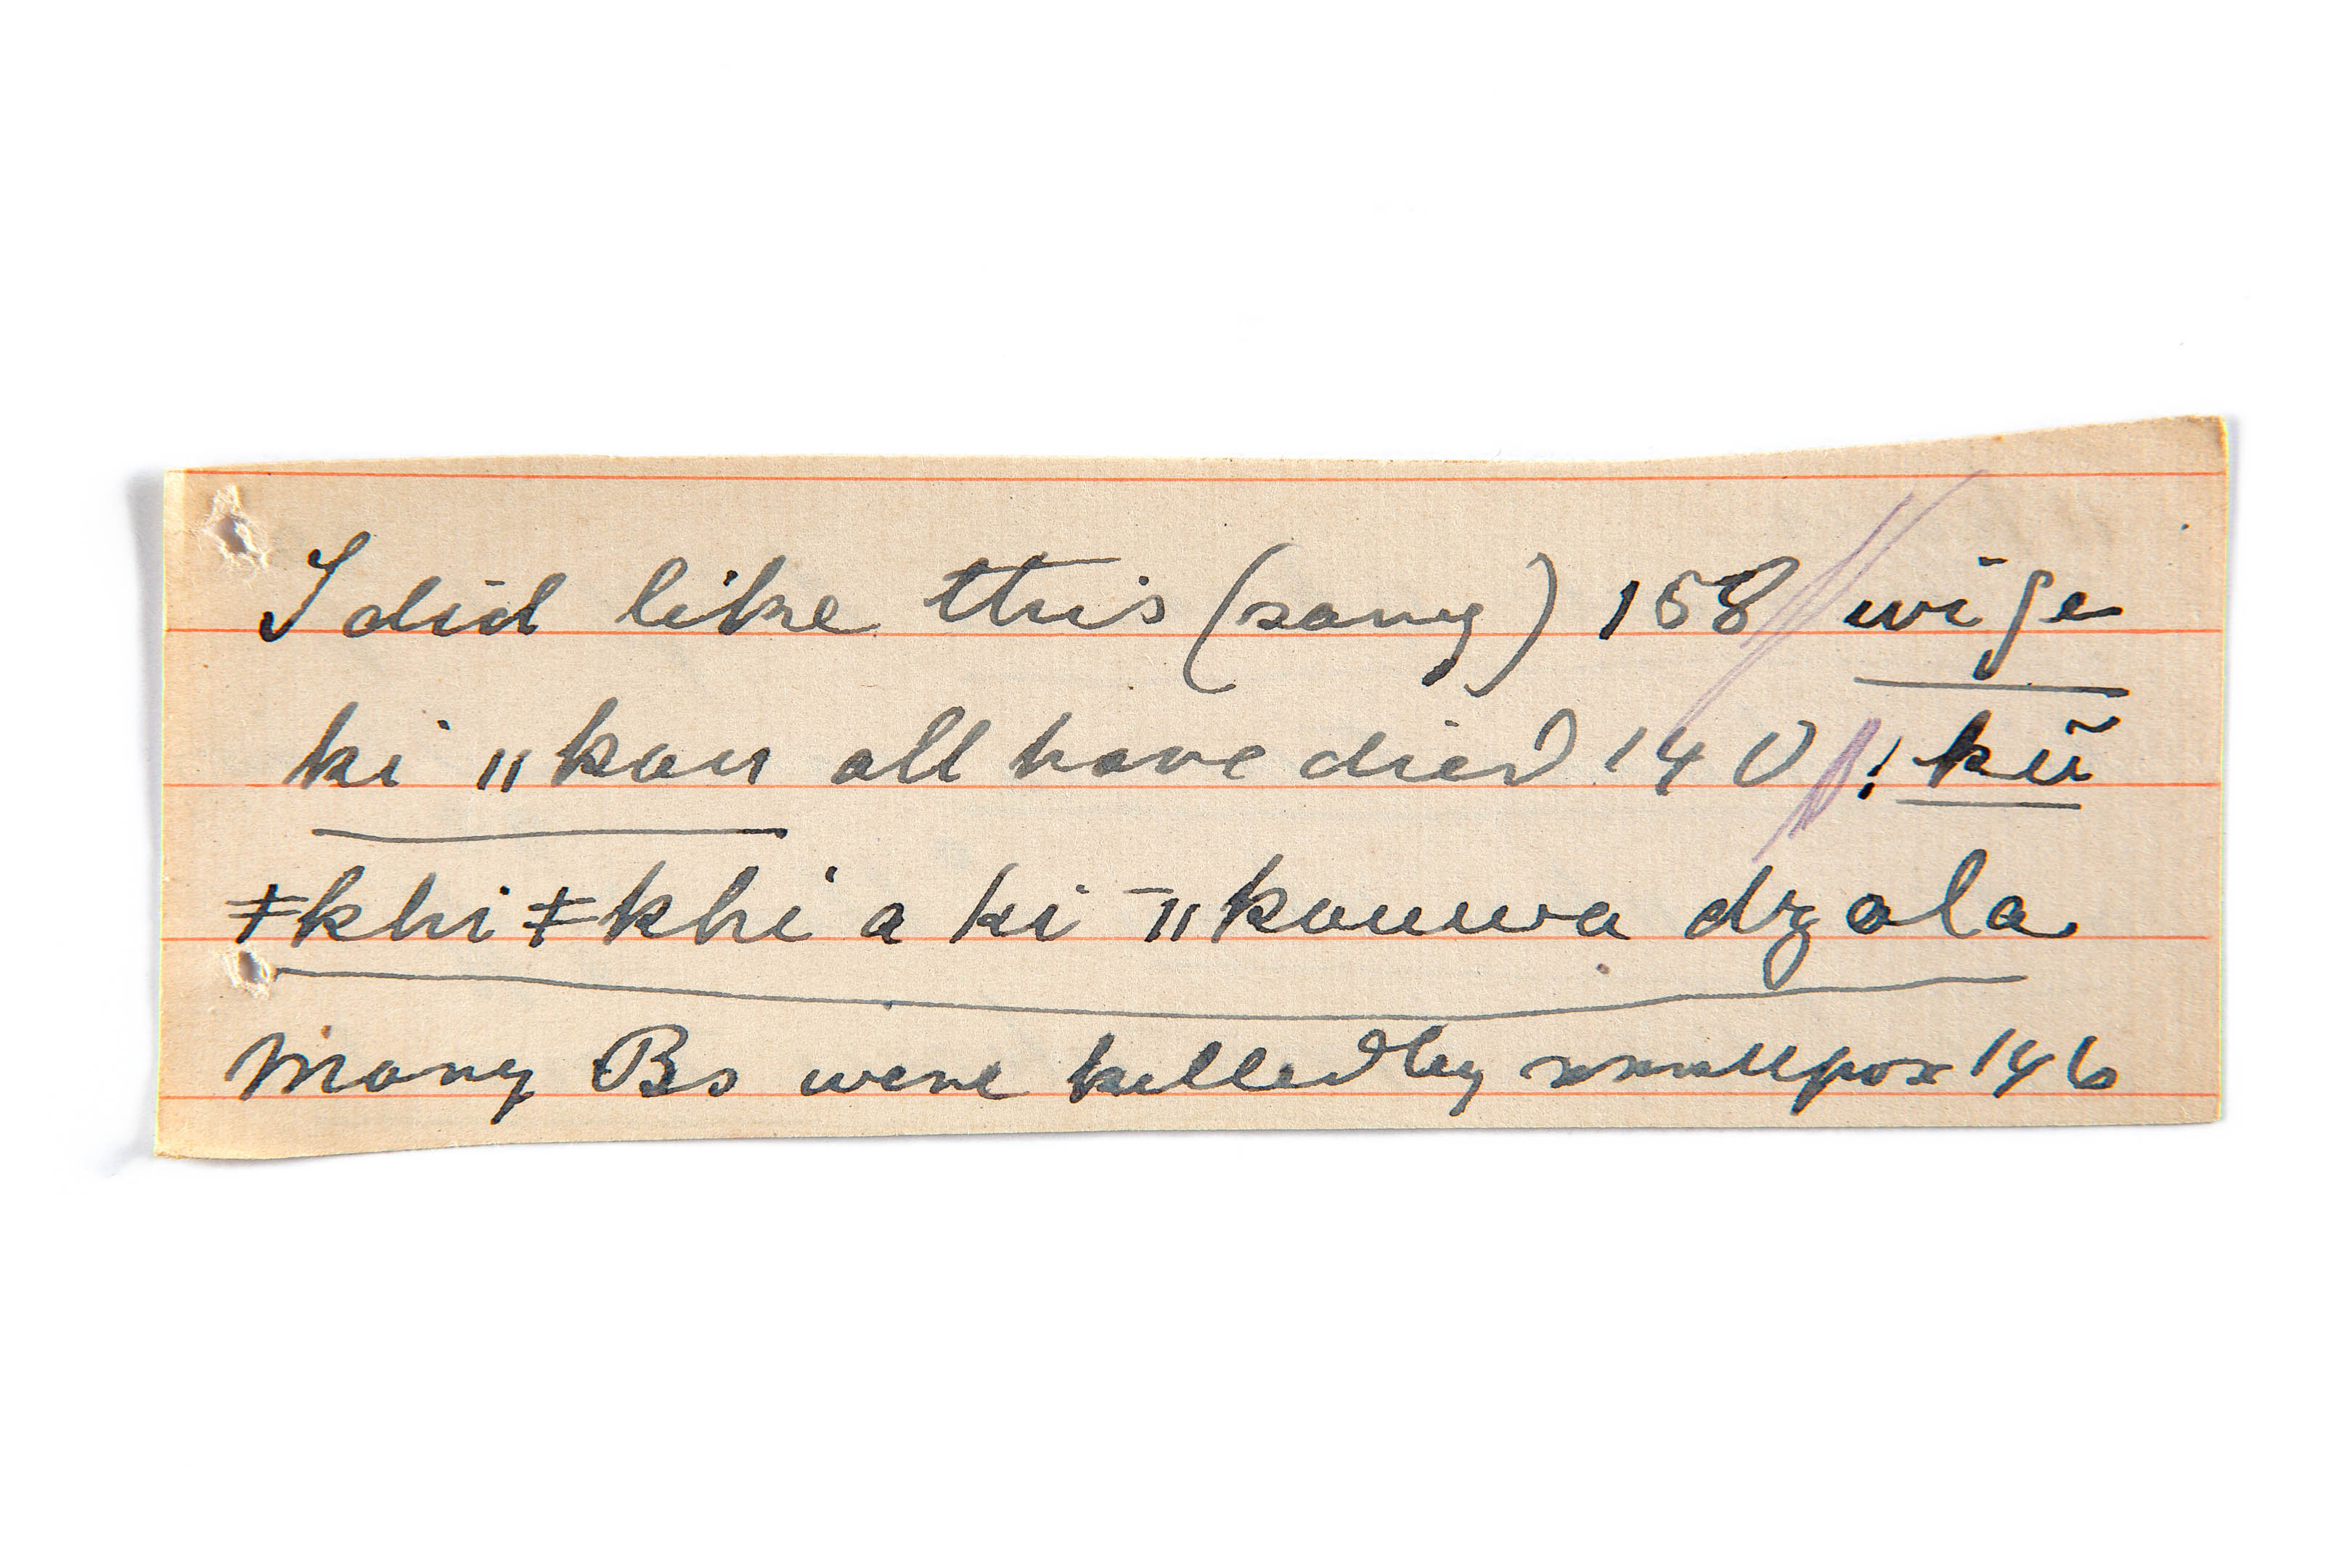 I did like this (sang) 158 // wiʃe
ki ǁkau all have died 140 // !kũ
ǂkhiǂkhi a ki ˉǁkauwa dzala
Many Bs were killed by smallpox 146